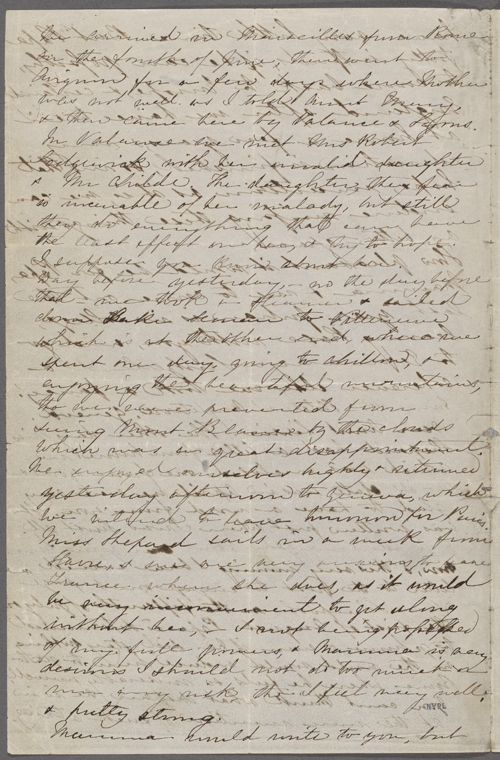 We arrived in Marseilles from Rome
on the fourth of June, then went to
Avignon for a few days where Mother
was not well as I told Aunt Emmy,
& then came here by Valance & Lyons.
In Valance we met Mrs Robert
Sedgwick with her invalid daughter
& Mr Childe. The daughter, they fear
is incurable of her malady, but still
they do everything that can have
the least effect on her, & try to hope.
I suppose you know about her.
Day before yesterday, no the day before
that we took a steamer & sailed
down Lake Leman to Villeneuve
which is at the other end, where we
spent one day, going to Chillon, &
enjoying the beautiful mountains,
tho we were prevented from
seeing Mont Blanc by the clouds
which was a great disappointment.
We enjoyed ourselves highly & returned
yesterday afternoon to Geneva, which
we intend to leave tomorrow for Paris.
Miss Shepard sails in a week from
Havre, & we are very anxious to leave
France when she does, as it would
be very inconvenient to get along
without her, I not being possessed
of my full powers, & Mamma is very
desirous I should not do too much or
run any risk tho I feel very well,
& pretty strong.
Mamma would write to you, but
NYPL